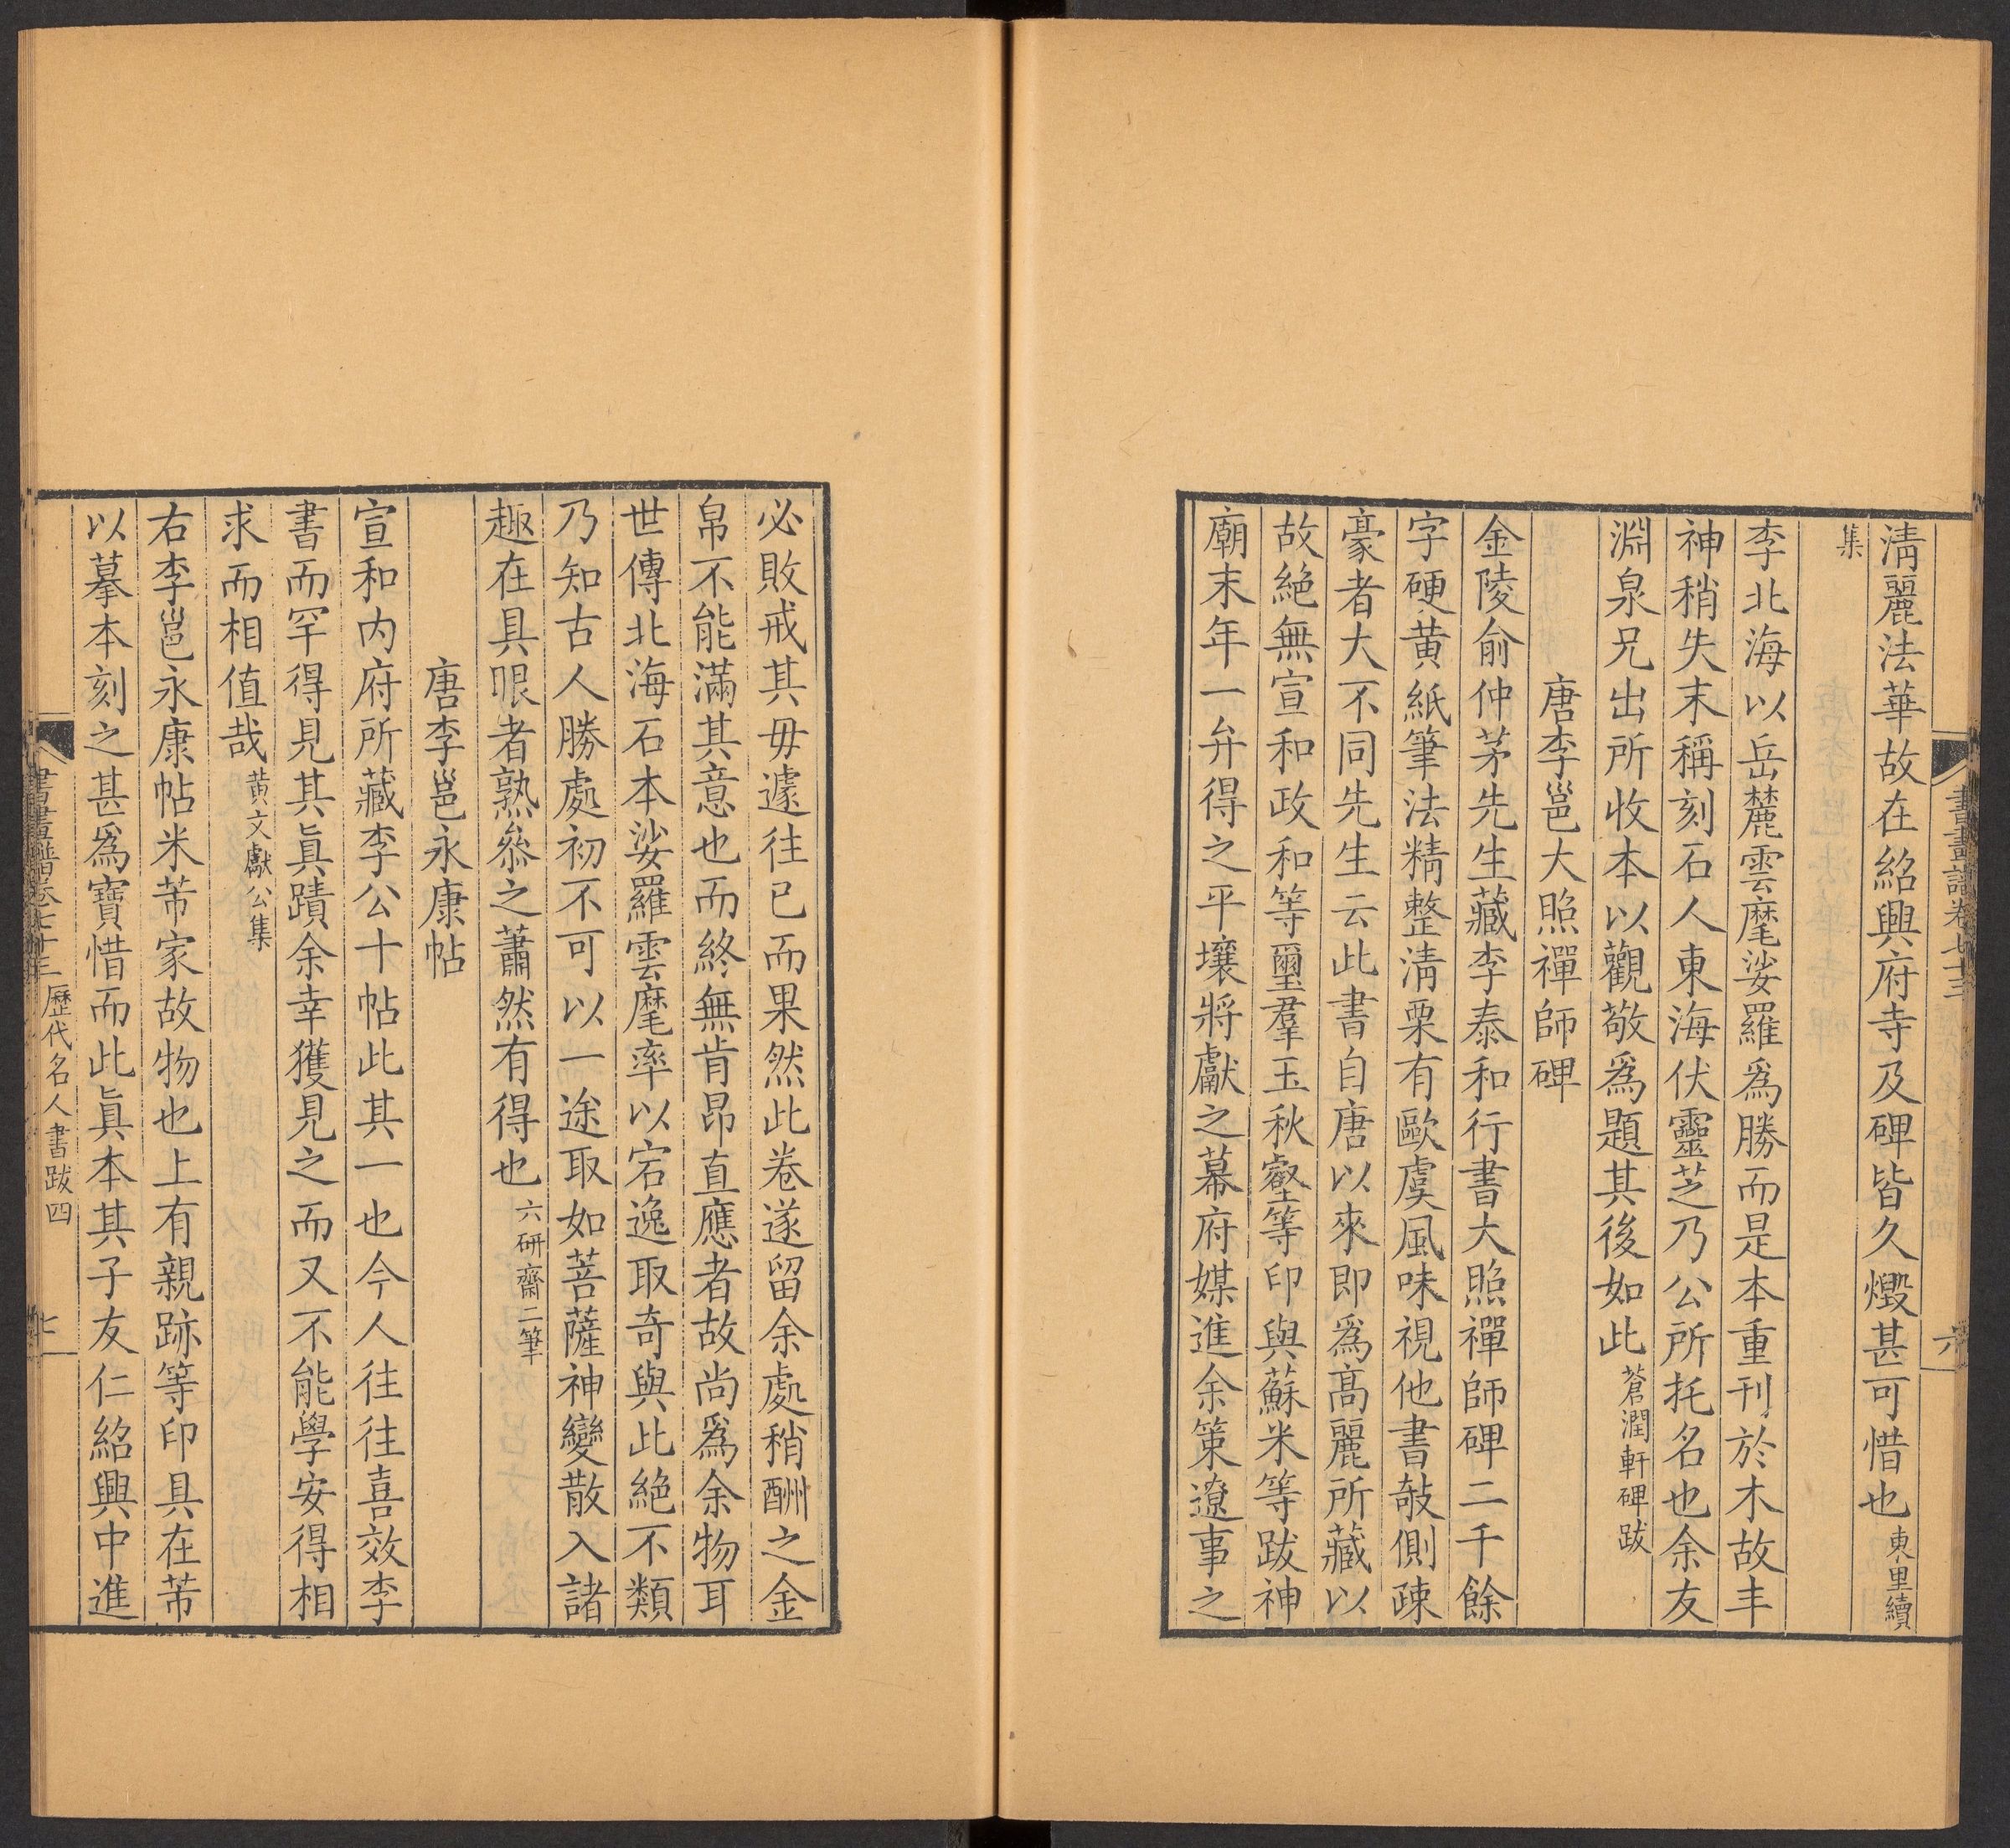 書畫譜卷七十三
六
清麗法華故在紹興府寺及碑皆久燬甚可惜也東里續
集
李北海以岳麓雲麾娑羅爲勝而是本重刊於木故丰
神稍失末稱刻石人東海伏靈芝乃公所托名也余友
淵泉兄出所收本以觀敬爲題其後如此蒼潤軒碑跋
唐李邕大照禪師碑
金陵俞仲茅先生藏李泰和行書大照禪師碑二千餘
字硬黄紙筆法精整清栗有歐虞風味視他書敧側疎
豪者大不同先生云此書自唐以來即爲高麗所藏以
故絶無宣和政和等璽羣玉秋壑等印與蘇米等跋神
廟末年一弁得之平壤將獻之幕府媒進余策遼事之
必敗戒其毋遽往已而果然此卷遂留余處稍酬之金
帛不能滿其意也而終無肯昂直應者故尚爲余物耳
世傳北海石本娑羅雲麾率以宕逸取奇與此絶不類
乃知古人勝處初不可以一途取如菩薩神變散入諸
趣在具眼者熟叅之蕭然有得也六研齋二筆
唐李邕永康帖
宣和内府所藏李公十帖此其一也今人往往喜效李
書而罕得見其眞蹟余幸獲見之而又不能學安得相
求而相值哉黄文獻公集
右李邕永康帖米芾家故物也上有親跡等印具在芾
以摹本刻之甚爲寶惜而此眞本其子友仁紹興中進
書畫譜卷七十三 歷代名人書跋四
七